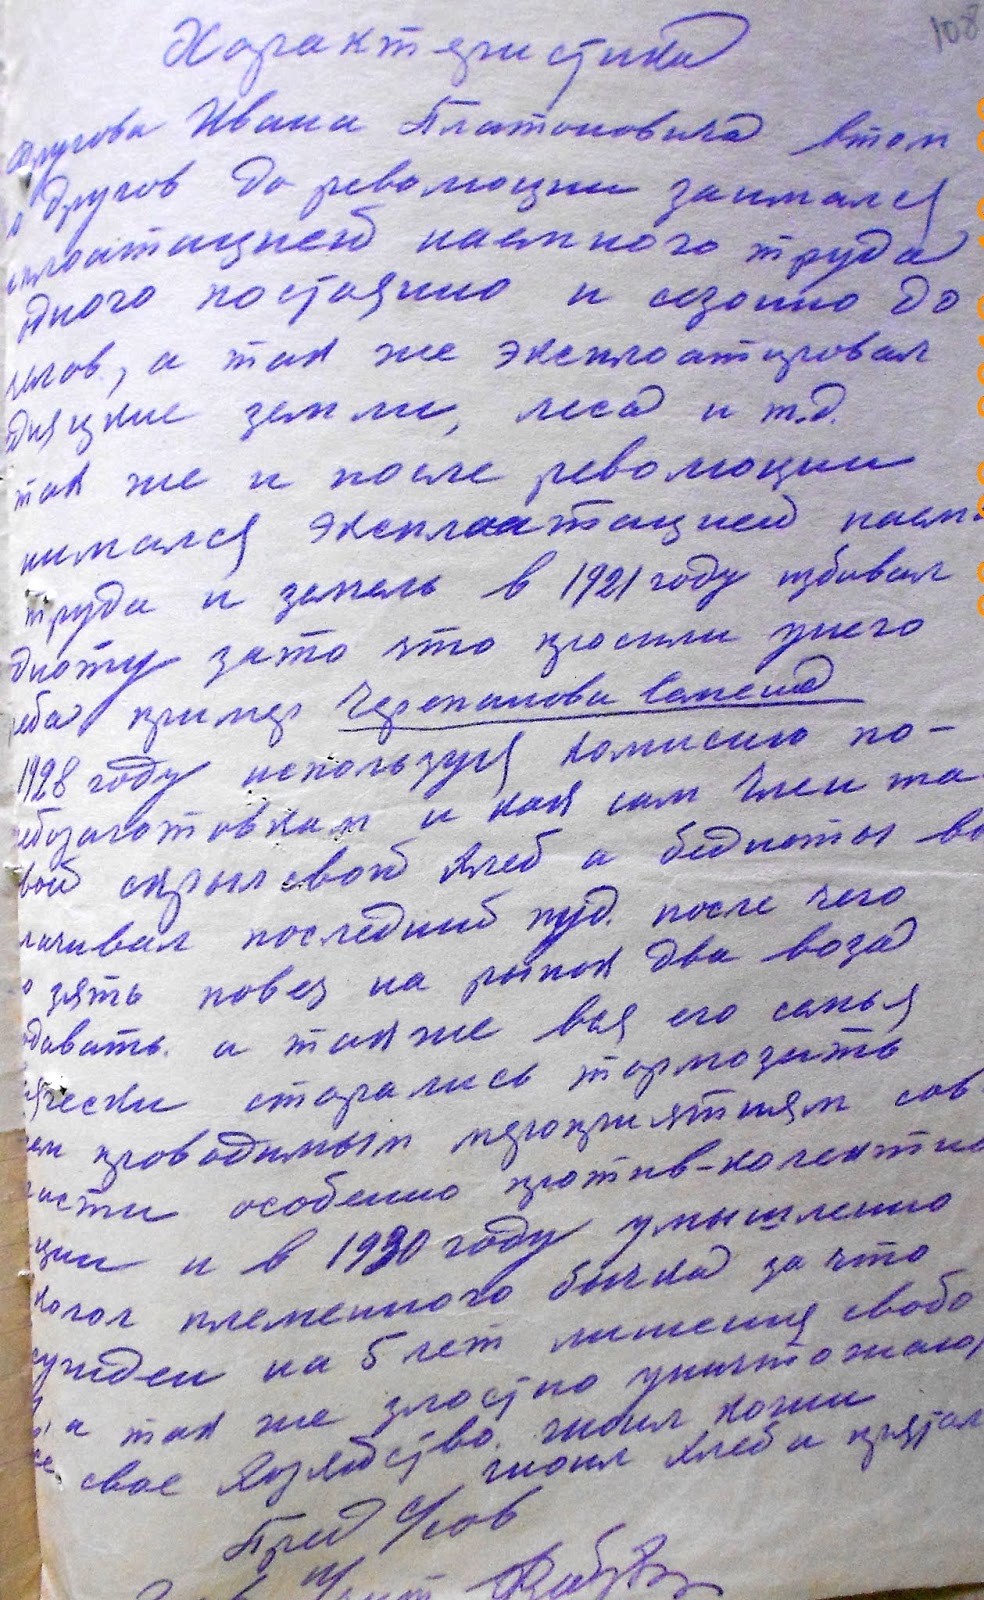 108
Характеристика
Другова Ивана Платоновича втом
Другов до революции заимался
плоатацией наемного труда
дного постаяно и сезонно до
гелов, а так же эксплоатировал
дняцкие земли, леса и т.д.
так же и после революции
нимался эксплоатацией наем-
труда и земель в 1921 году избивал
дноту зато что просили унего
еба, пример Черепанова Семена
1928 году используя комисию по-
ебозаготовкам и как сам член та-
вой скрыл свой хлеб а бедноты вы
лачивал последний пуд. после чего
зять повез на рынок два воза
одавать. а также вся его семья
ячески старались тормозить
ем проводимым мероприятиям сов-
ласти особенно против-колекти
ции и в 1930 году умышленно
колол племенного бычка за что
сужден на 5 лет лишения свобо
а так же злостно уничтожают
все свое хозяйство. гноил кожи
гноил хлеб и прятал
Пред с/сов